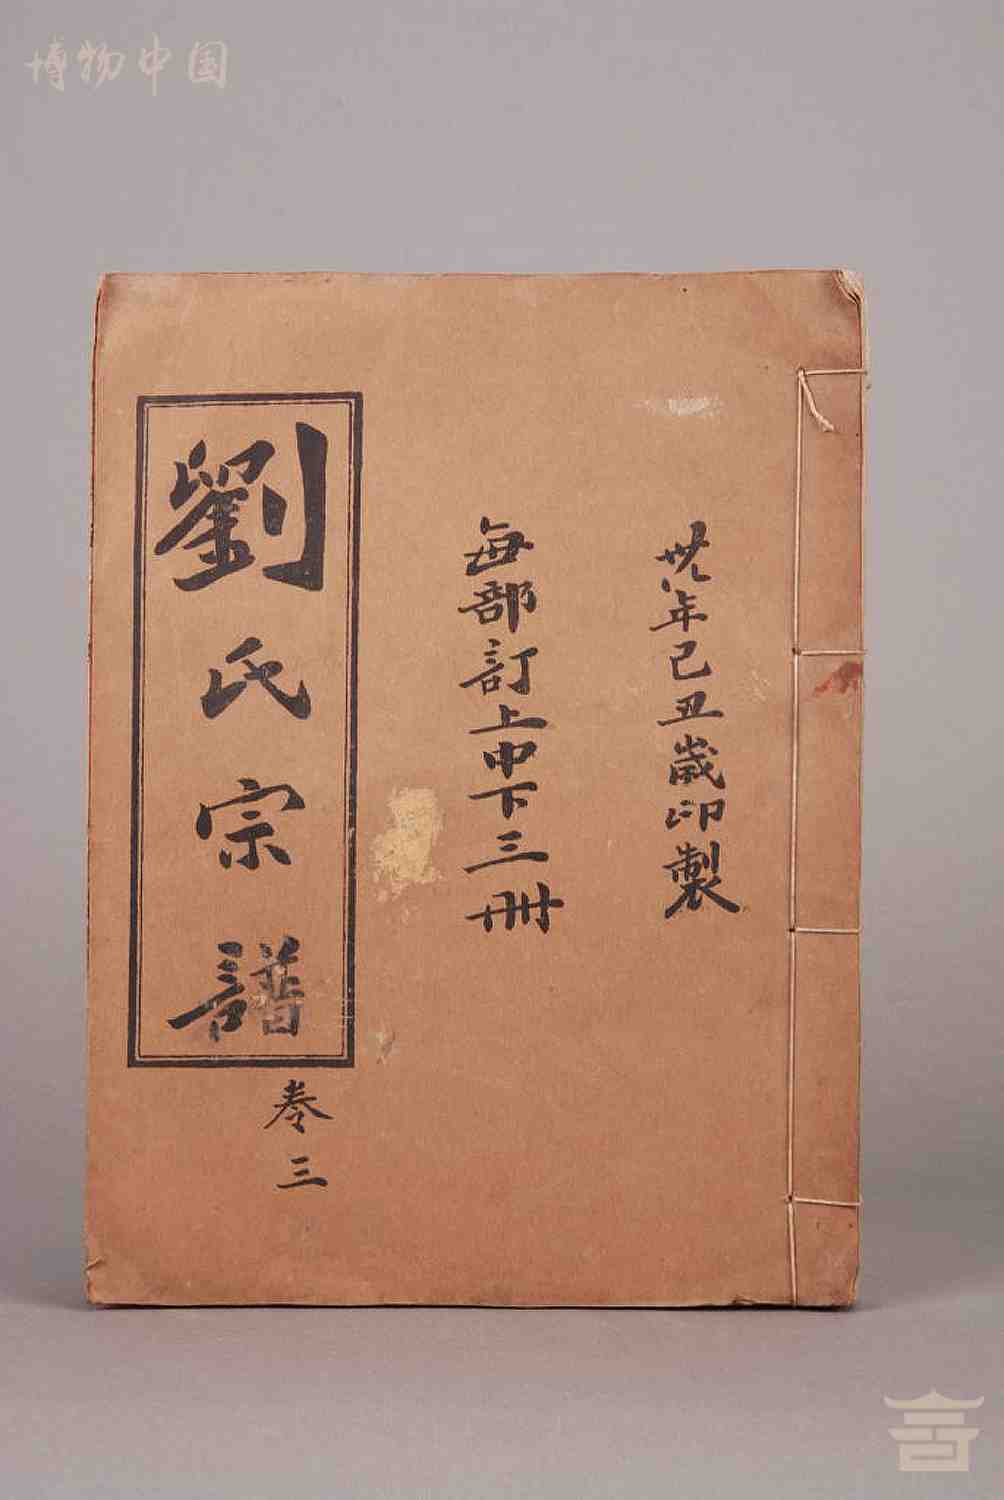 博物中国
卅八年己丑歲印製
每部訂上中下三冊
劉氏宗譜
卷三